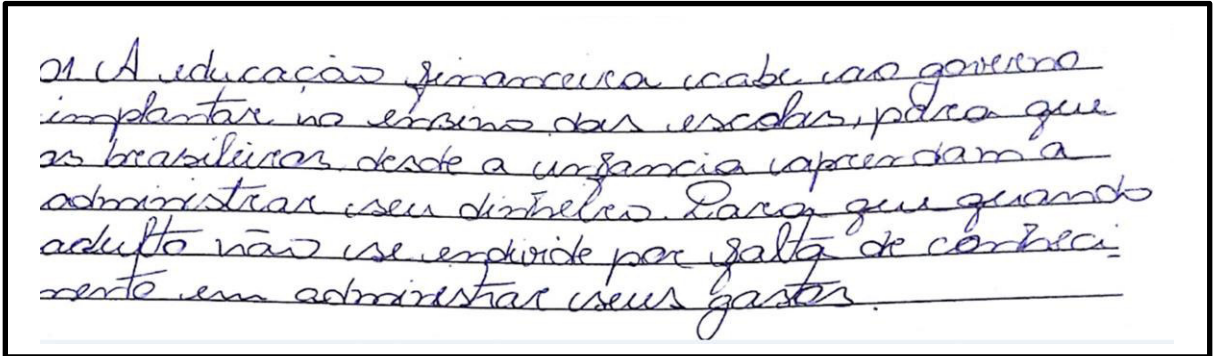 01. A educação financeira cabe ao governo
implantar no ensino das escolas, para que
os brasileiros desde a infancia aprendam a
administrar seu dinheiro. Para que quando
adulto não se endivide por falta de conheci-
mento em administrar seus gastos.